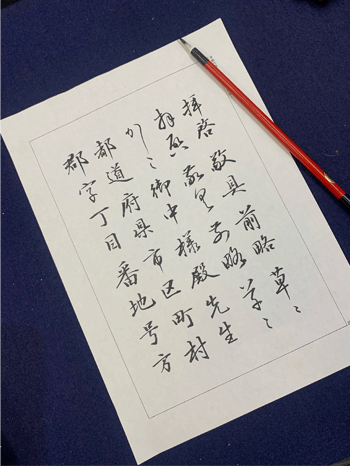 拝啓 敬具 前略 草々
拝啓 敬具 前略 草々
かしこ 御中 様 殿 先生
都道府県市区町村
郡字丁目番地号方